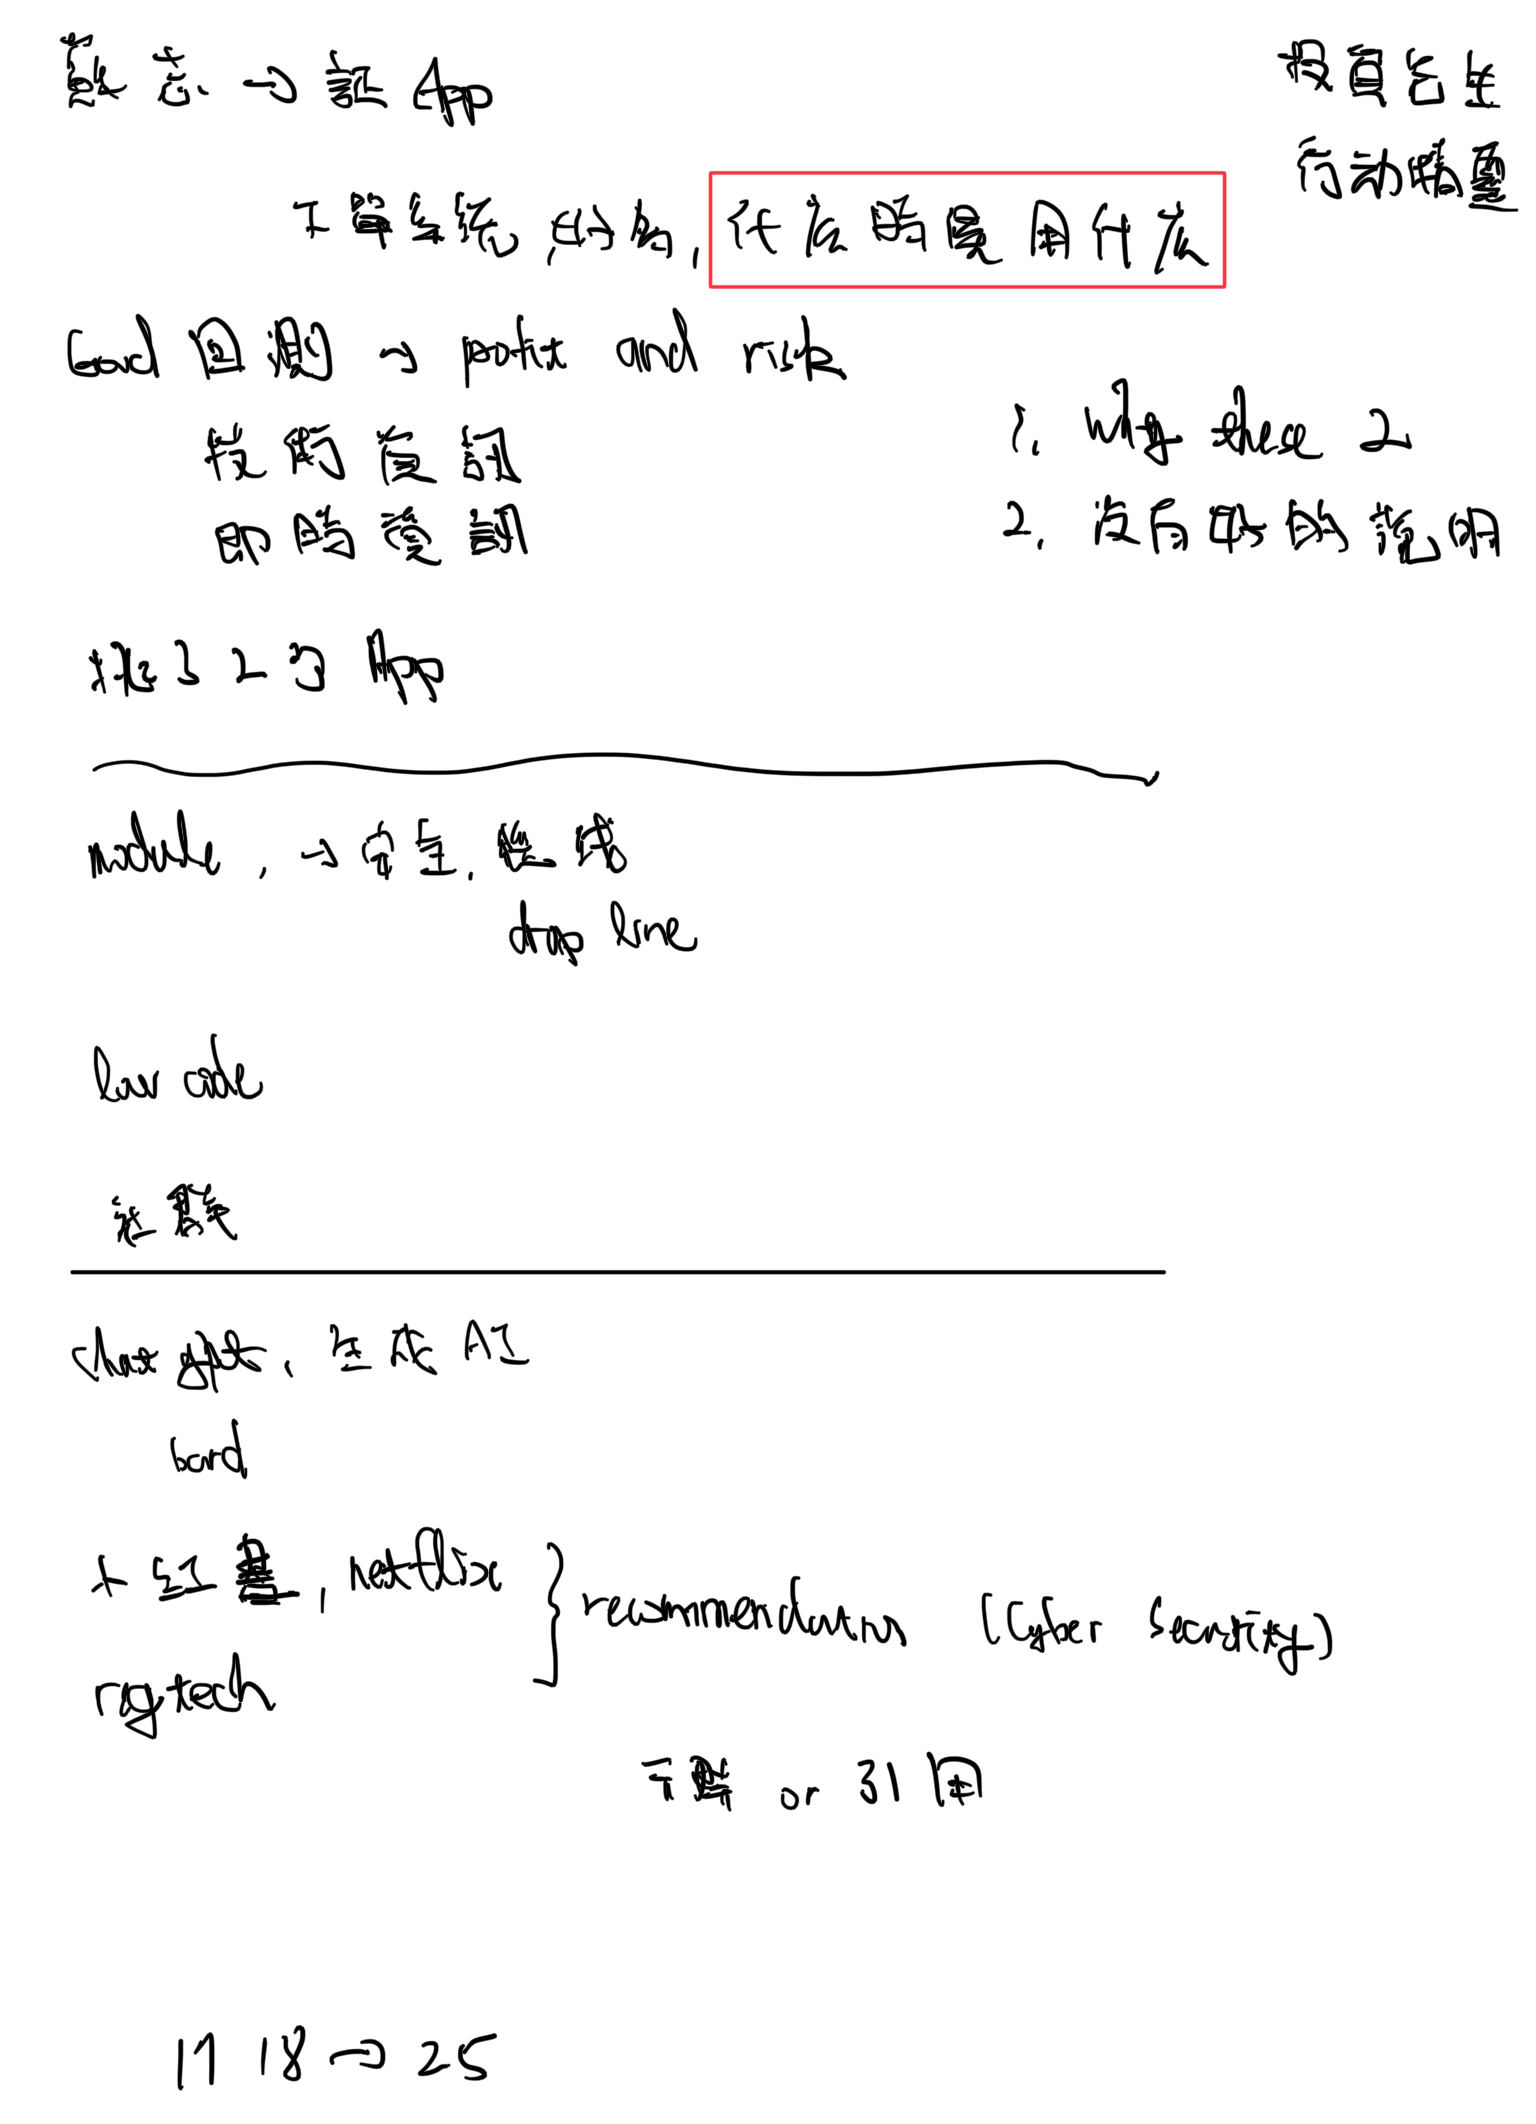 → 証 App
投資先生
行动精靈
下單系統, 什広時候用什広
Good 回測 → profit and risk
技術資訊
即時資訊
1. why these 2
2. 沒有 的說明
挑了2个 App
module, → 安全, 連线
drop line
low code
社群
chat gpt, 生成 AI
bard
小红書, netflix
regtech
recommendations (Cyber Security)
下降 or 31 用
17 18 → 25